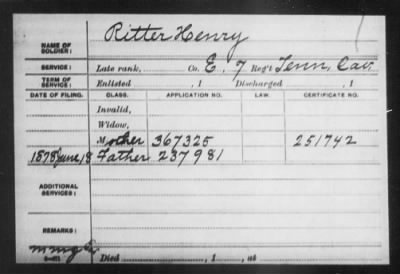 Ritter Henry
NAME OF SOLDIER:
SERVICE: Late rank, Co. E. 7 Reg't Tenn, Cav.
TERM OF SERVICE: Enlisted , 1 Discharged , 1
DATE OF FILING. CLASS. APPLICATION NO. LAW. CERTIFICATE NO.
Invalid,
Widow,
Mother 367325 251742
1878 June, 18 Father 237981
ADDITIONAL SERVICES:
REMARKS:
Died , 1 , at